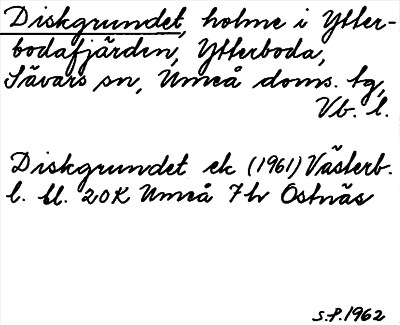 Diskgrundet, holme i Ytter-
bodafjärden, Ytterboda,
Sävars sn, Umeå doms. tg,
Vb. l.
Diskgrundet ek (1961) Västerb.
l. bl. 20K Umeå 7h Ostnäs
S.P. 1962